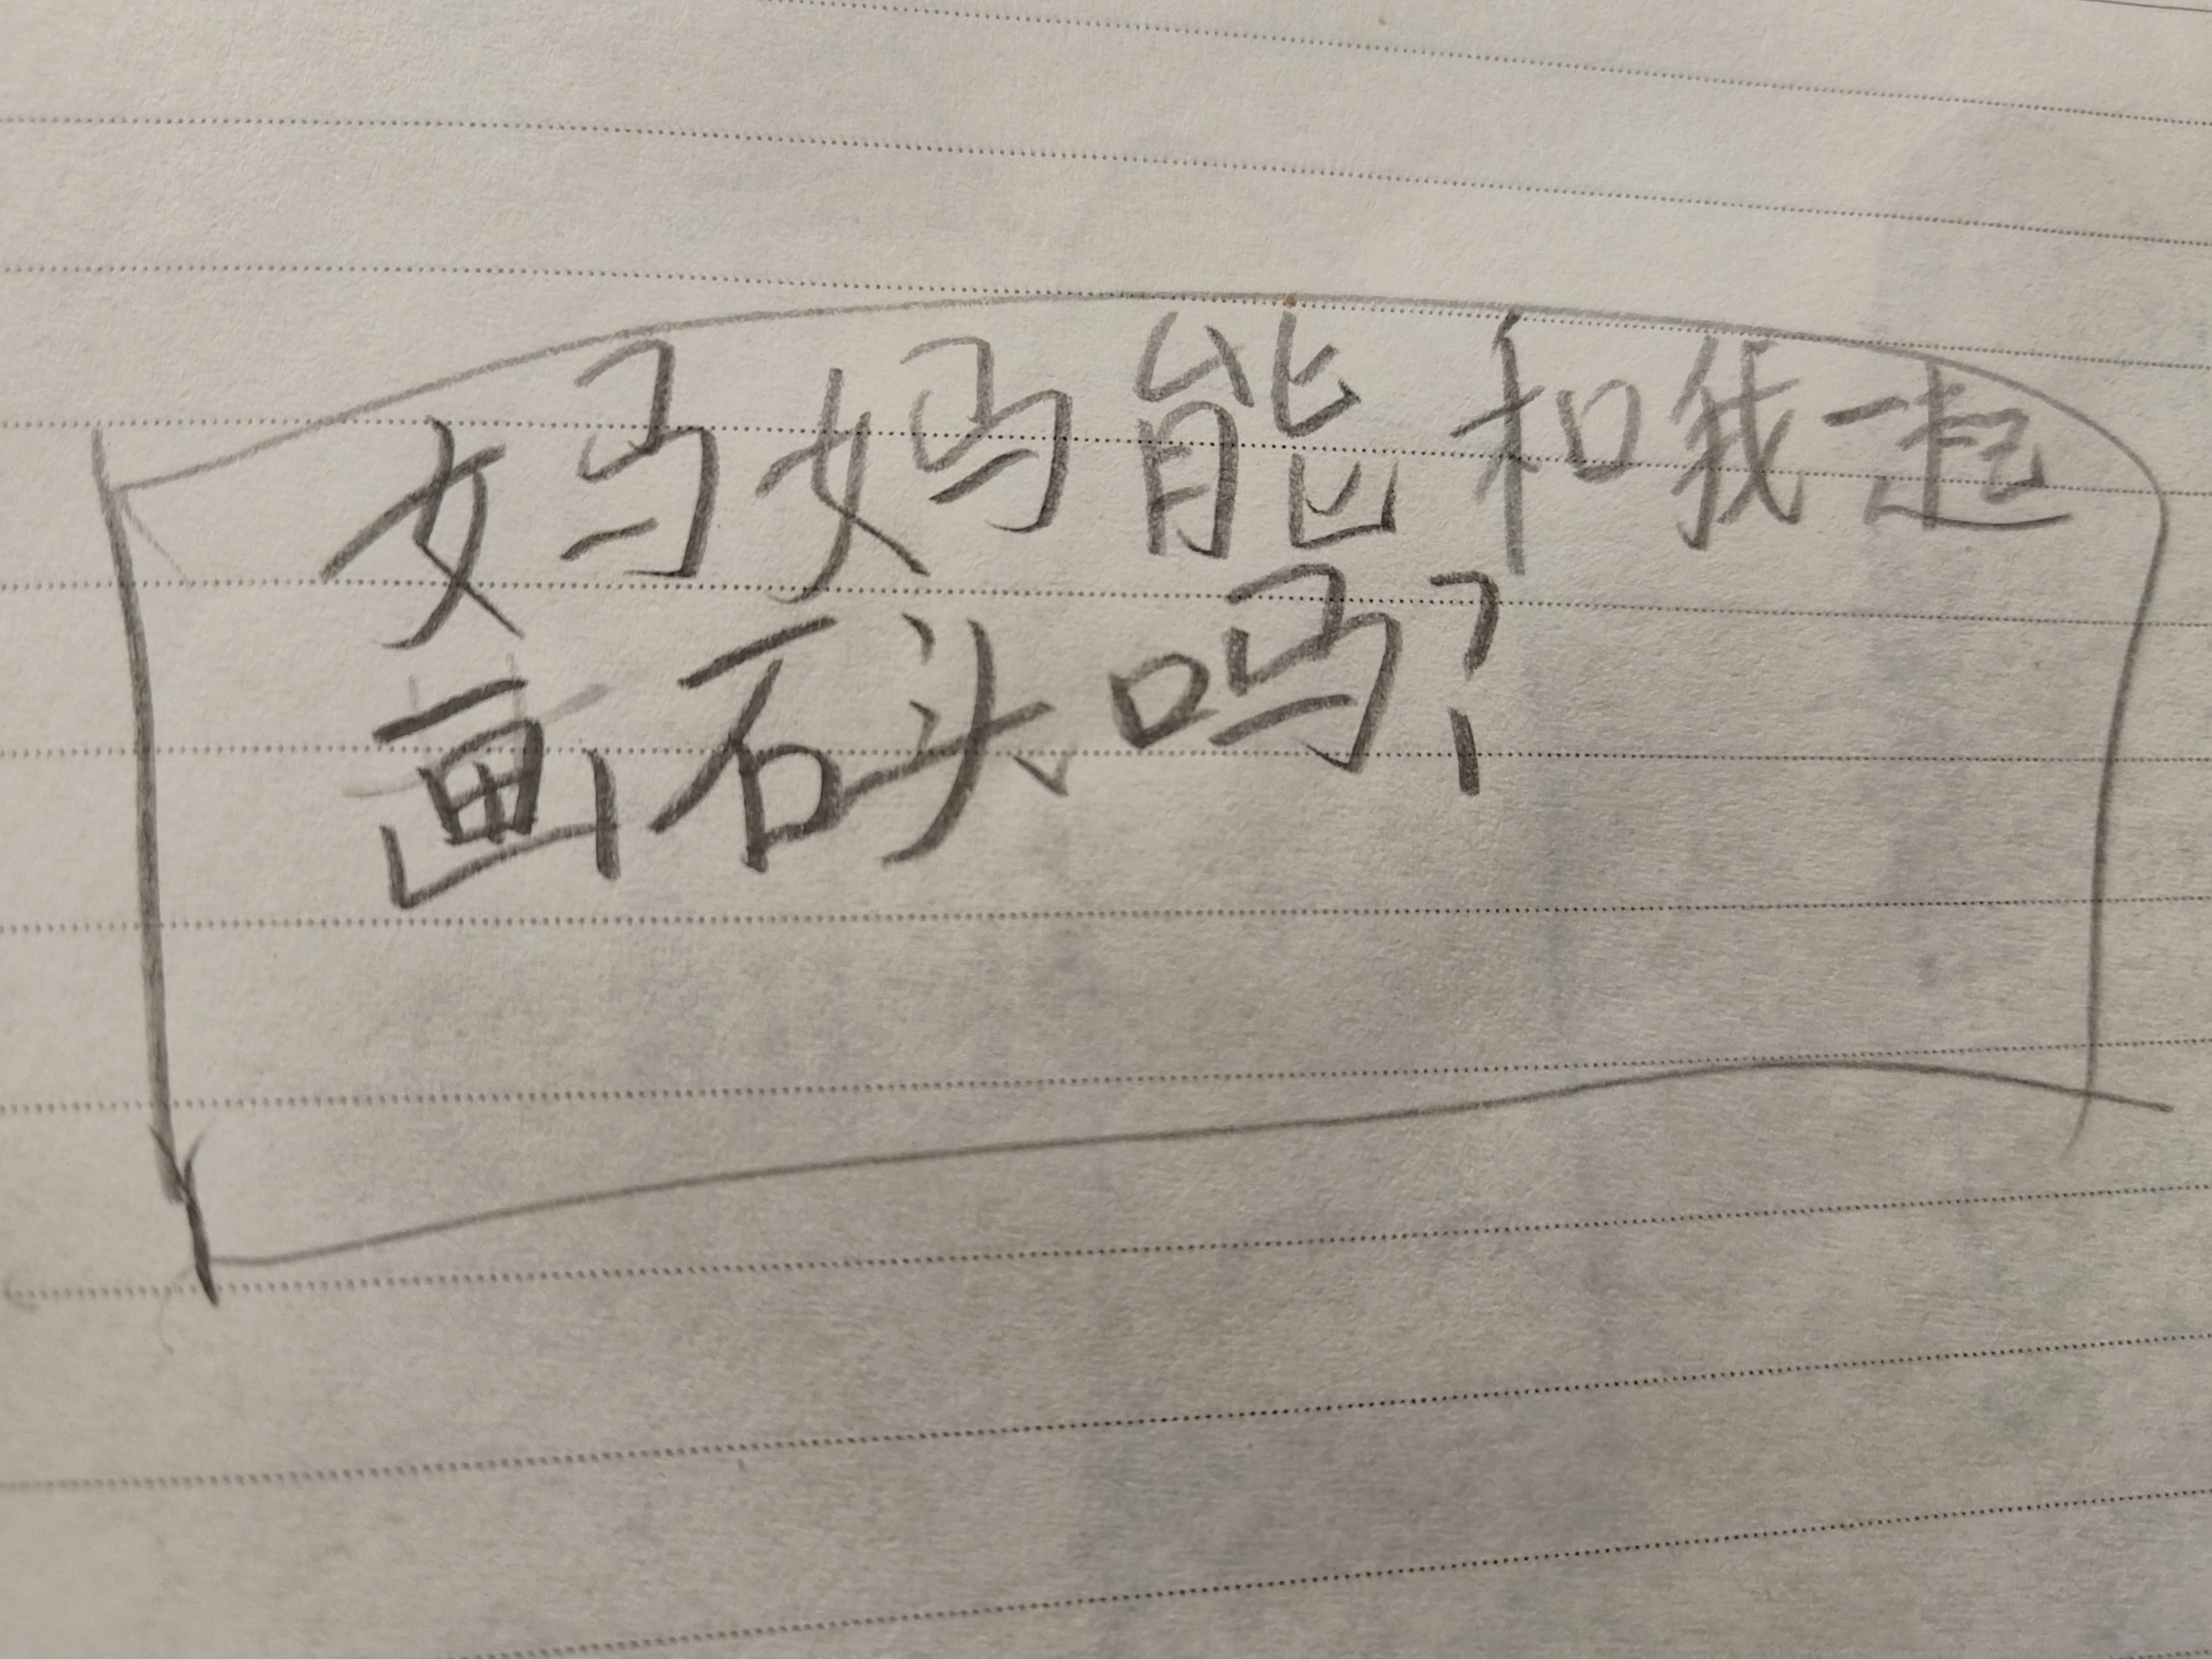 妈妈能和我一起
画石头吗？